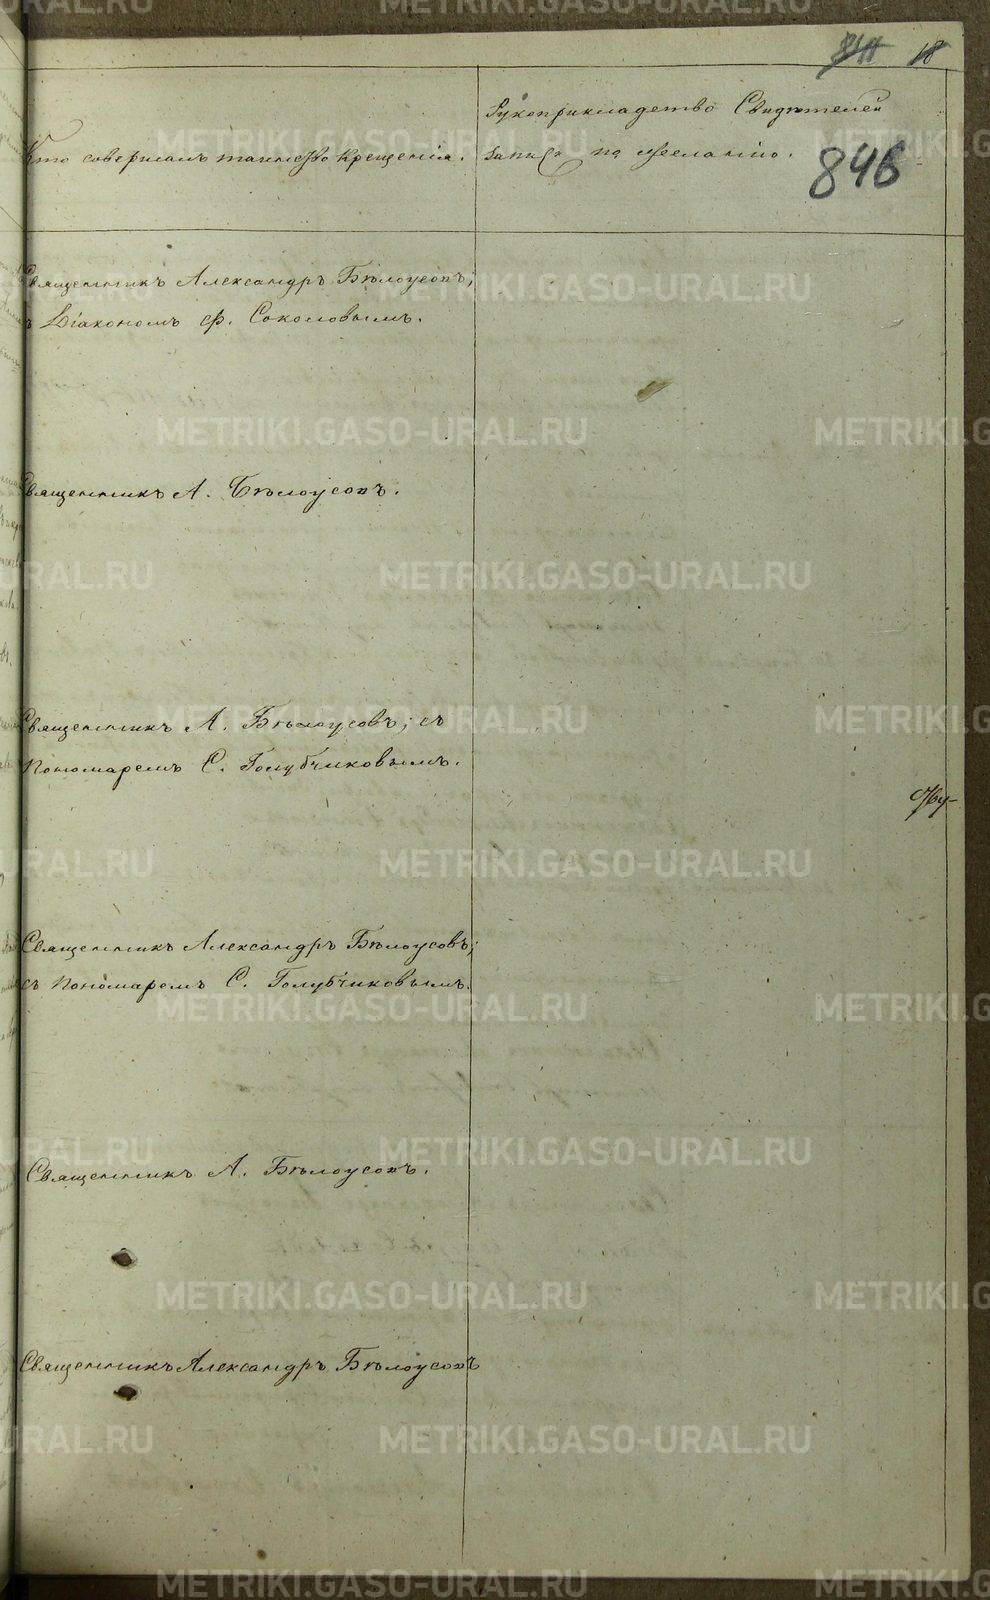 18
846
Кто совершалъ таинство крещенія.
Рукоприкладство Свидѣтелей
записи по желанію.
Священникъ Александръ Бѣлоусовъ;
съ Діакономъ Ф. Соколовымъ.
Священникъ А. Бѣлоусовъ.
Священникъ А. Бѣлоусовъ; съ
Пономаремъ С. Голубчиковымъ.
Священникъ Александръ Бѣлоусовъ;
съ Пономаремъ С. Голубчиковымъ.
Священникъ А. Бѣлоусовъ.
Священникъ Александръ Бѣлоусовъ
METRIKI.GASO-URAL.RU